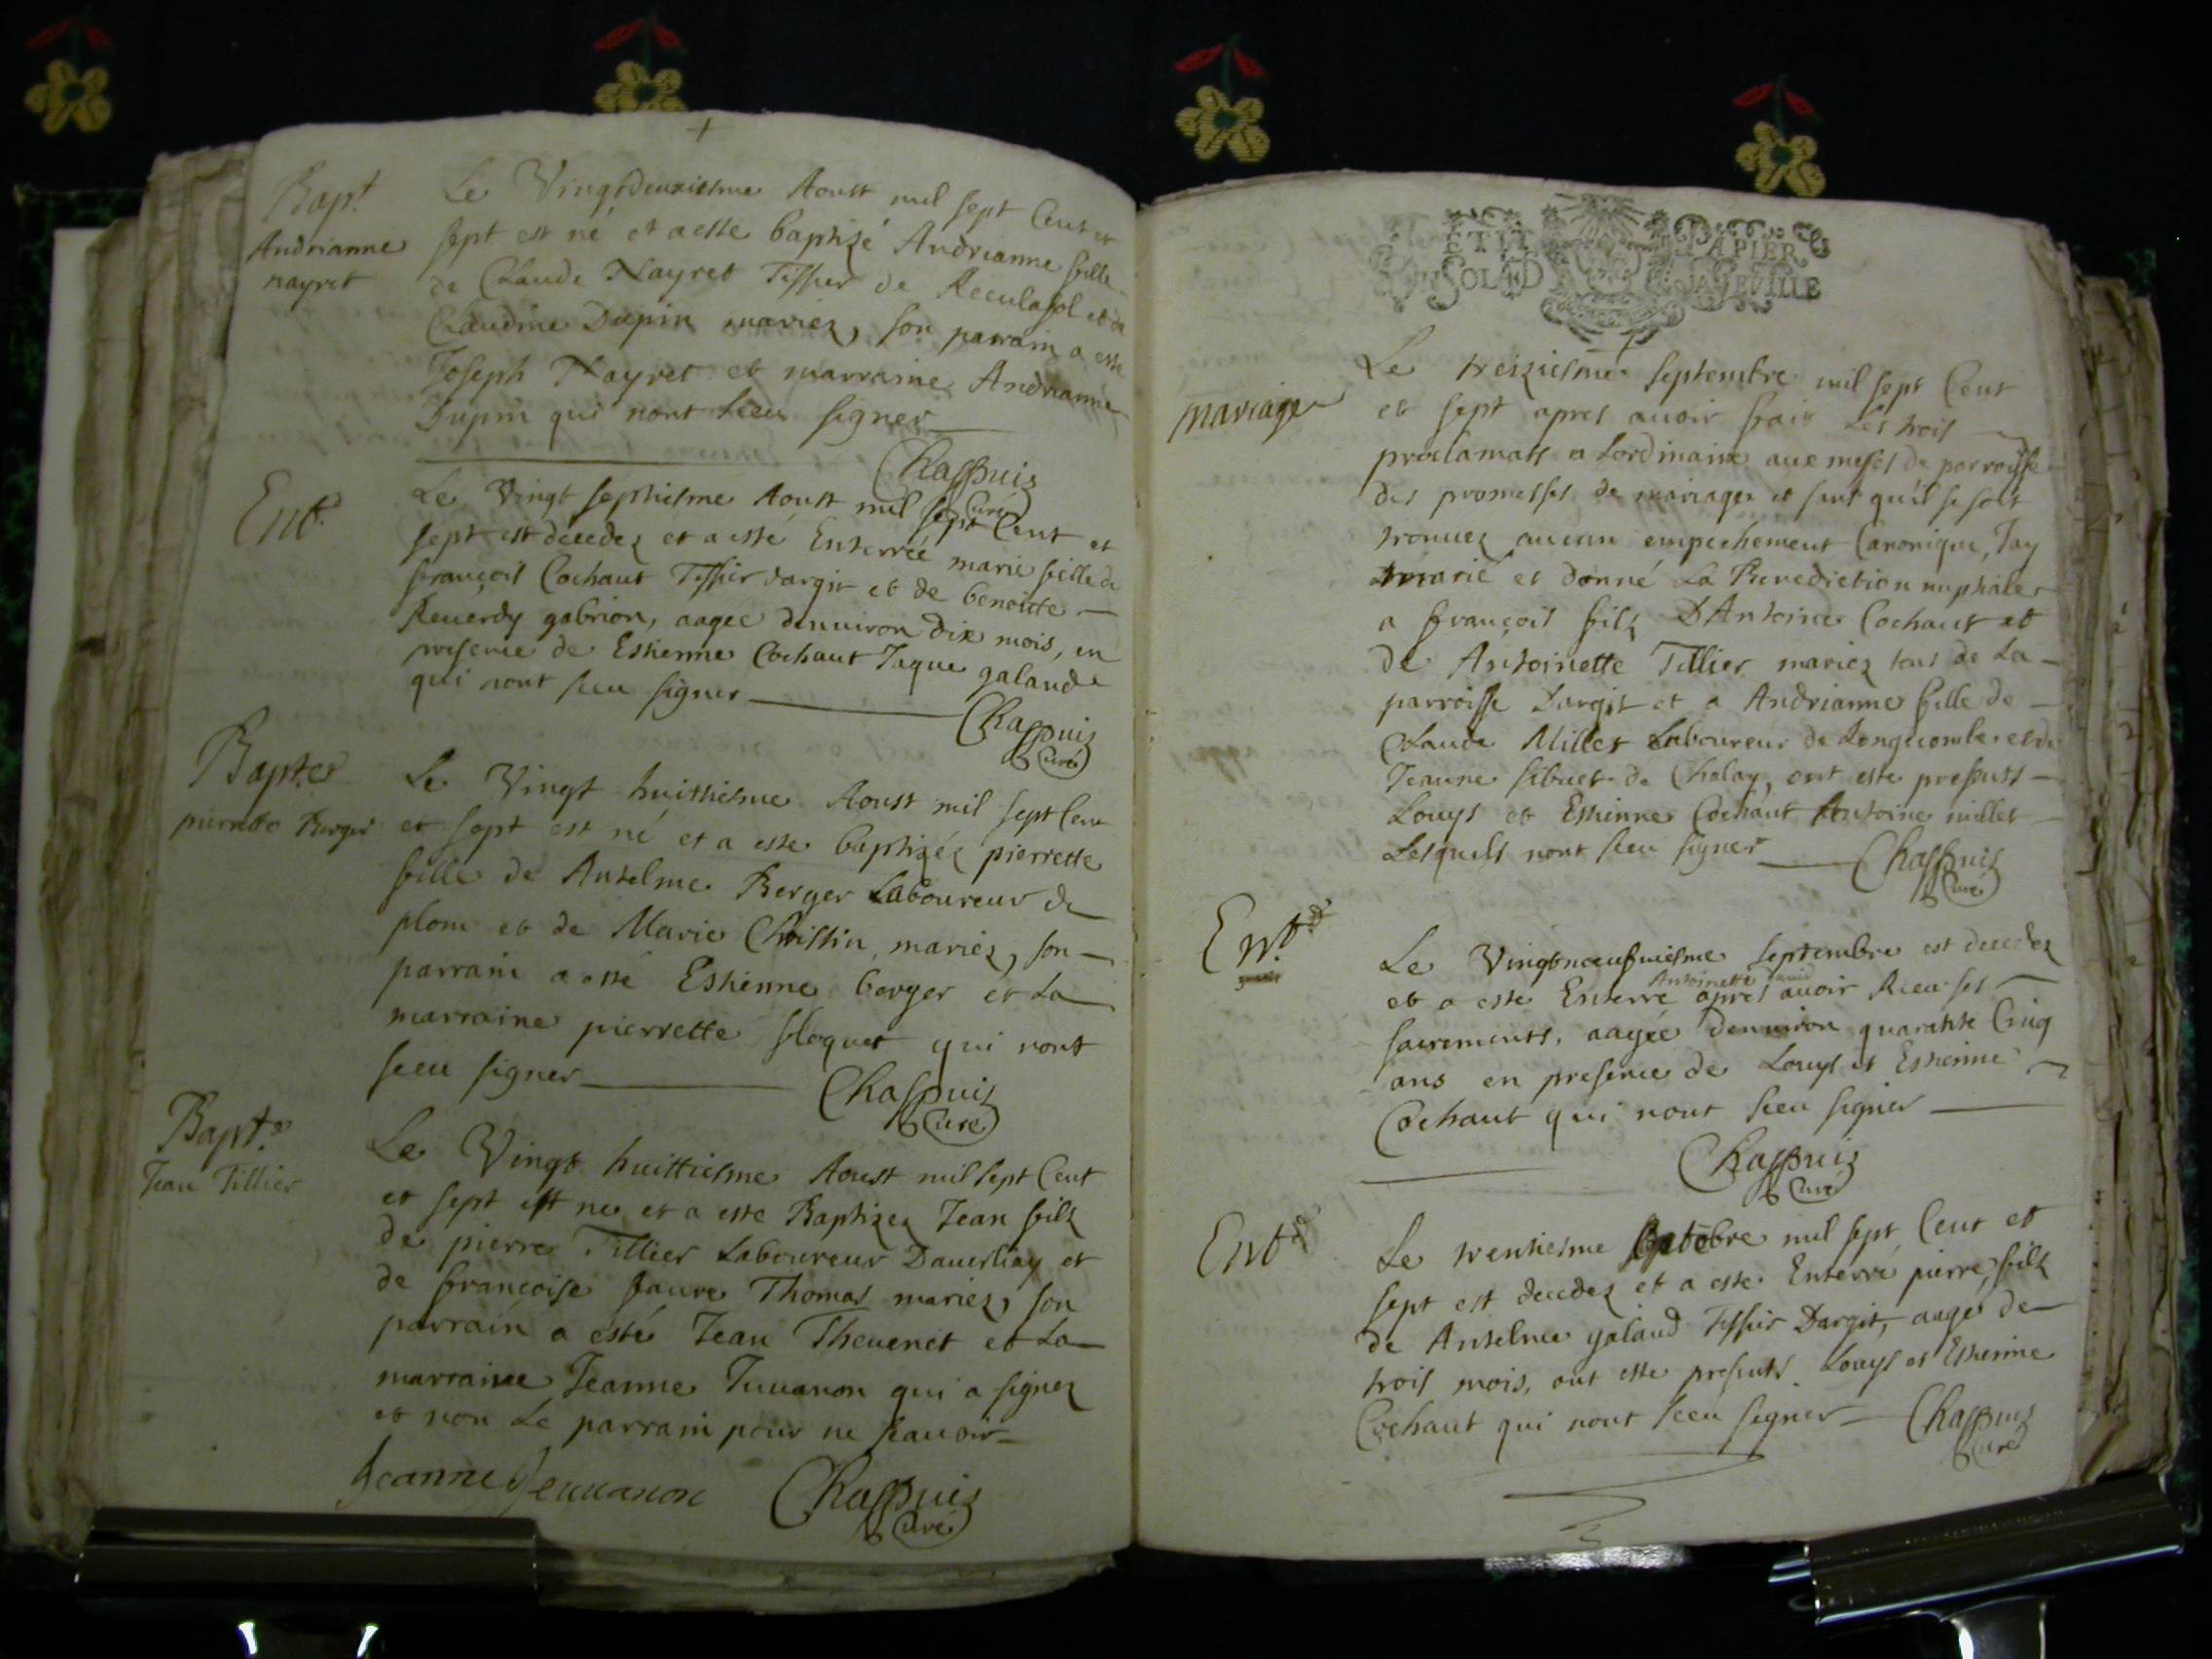 Bapt
Andrianne
nayret
Le Vingtdeuxiesme Aoust mil sept Cent et
sept est né et a esté baptizé Andrianne fille
de Claude Nayret Tissier de Reculafol et de
Claudine Dupin mariez, son parrain a esté
Joseph Nayret et marraine Andrianne
Dupin qui nont sceu signer
Chappuis
Curé
Ent.
Le Vingt septiesme Aoust mil sept Cent et
sept est decedez et a esté Enterrée marie fille de
françois Cochaut Tissier dargit et de benoitte
Reuerdy gabrion, aagee denuiron dix mois, en
presence de Estienne Cochaut Jaque galand
qui nont sceu signer
Chappuis
Curé
Bapt.
pierrette Berger
Le Vingt huittiesme Aoust mil sept Cent
et sept est né et a esté baptizéz pierrette
fille de Antelme Berger Laboureur de
plom et de Marie Christin, mariez, son
parrain a esté Estienne berger et La
marraine pierrette floquet qui nont
sceu signer
Chappuis
Curé
Bapt.
Jean Tillier
Le Vingt huittiesme Aoust mil sept Cent
et sept est né et a esté Baptizez Jean filz
de pierre Tillier Laboureur et
de francoise faure Thomas mariez, son
parrain a esté Jean Theuenet et La
marraine Jeanne Juuanon qui a signez
et non Le parrain pour ne scauoir
Jeanne Jeuuanon
Chappuis
Curé
PETIT PAPIER
UN SOL
mariage
Le treiziesme septembre mil sept Cent
et sept apres auoir fait Les trois
proclamats a Lordinaire aux messes de parroisse
des promesses de mariage et sans quil se soit
trouuez aucun empechement Canonique, Jay
marié et donné La Benediction nuptiale
a françois filz DAntoine Cochaut et
de Antoinette Tillier mariez tous de La
parroisse Dargit et a Andrianne fille de
Claude Millet Laboureur de Longecombe et de
Jeanne sibuet de Chalay, ont esté presents
Louys et Estienne Cochaut Antoine millet
Lesquels nont sceu signer
Chappuis
Curé
Ent.
Le Vingtneufuiesme septembre est decedez
Antoinette
et a esté Enterré apres auoir Receu ses
sacrements, aagée denuiron quarante Cinq
ans en presence de Louys et Estienne
Cochaut qui nont sceu signer
Chappuis
Curé
Ent.
Le trentiesme mil sept Cent et
sept est decedez et a esté Enterré pierre, filz
de Antelme galand Tissier Dargit, aagé de
trois mois, ont esté presents Louys et Estienne
Cochaut qui nont sceu signer
Chappuis
Curé